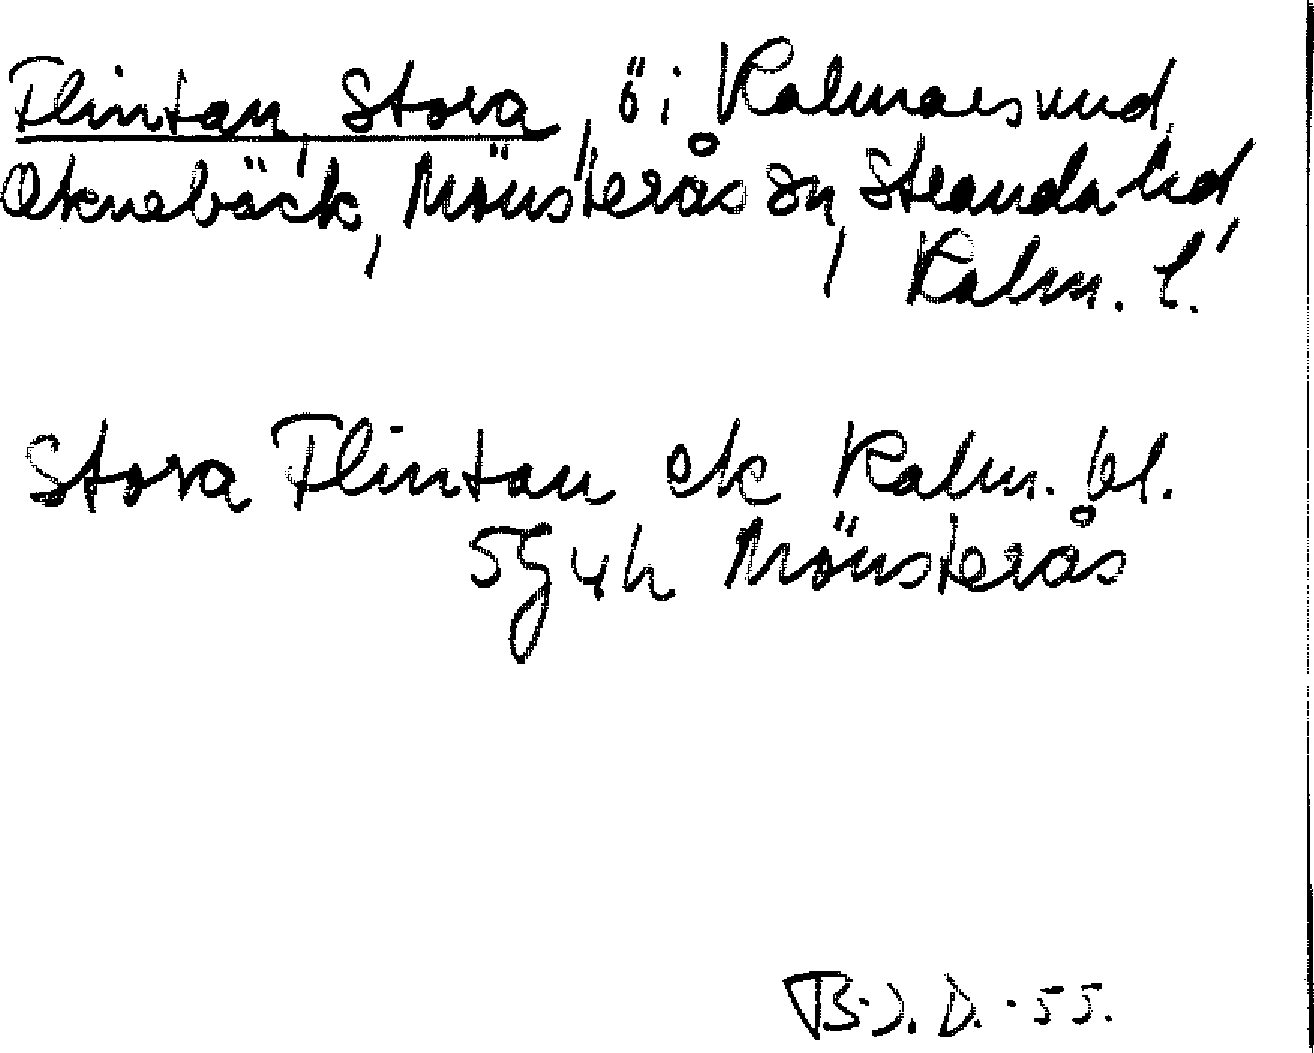 Flintan, Stora, ö i Kalmarsund,
Oknebäck, Mönsterås sn, Stranda hd,
Kalm. l.
Stora Flintan ek Kalm. bl.
5G4h Mönsterås
B.J.D. -55.